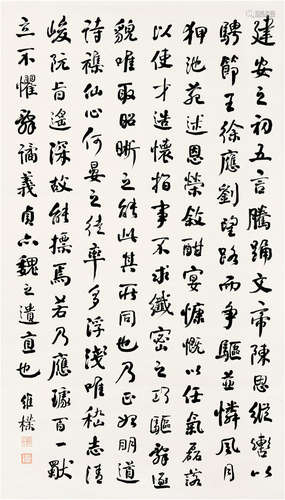 建安之初五言騰踴文帝陳思縱轡以
騁節王徐應劉望路而爭驅並憐風月
狎池苑述恩榮敘酣宴慷慨以任氣磊落
以使才造懷指事不求纖密之巧驅辭逐
貌唯取昭晰之能此其所同也乃正始明道
詩襍仙心何晏之徒率多浮淺唯嵇志清
峻阮旨遙深故能標焉若乃應璩百一獸
立不懼辭譎義貞亦魏之遺直也 維樸